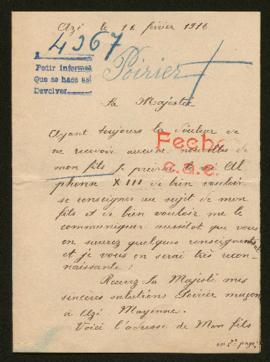 Azé le 16 février 1916
4267
A
Pedir informes
Que se hace así
Devolver
Poirier
Sa Majesté
Ayant toujours la douleur de
ne recevoir aucune nouvelles de
mon fils je prie Al
Fecho
phonse XIII de bien vouloir
c.d.e.
se renseigner au sujet de mon
fils et de bien vouloir me le
communiquer aussitot que vous
en aurez quelques renseignements
et je vous en serai très recon-
naissante!
Recevez Sa Majesté mes
sincères salutations Poirier maçon
à Azé Mayenne.
Voici l'adresse de Mon fils